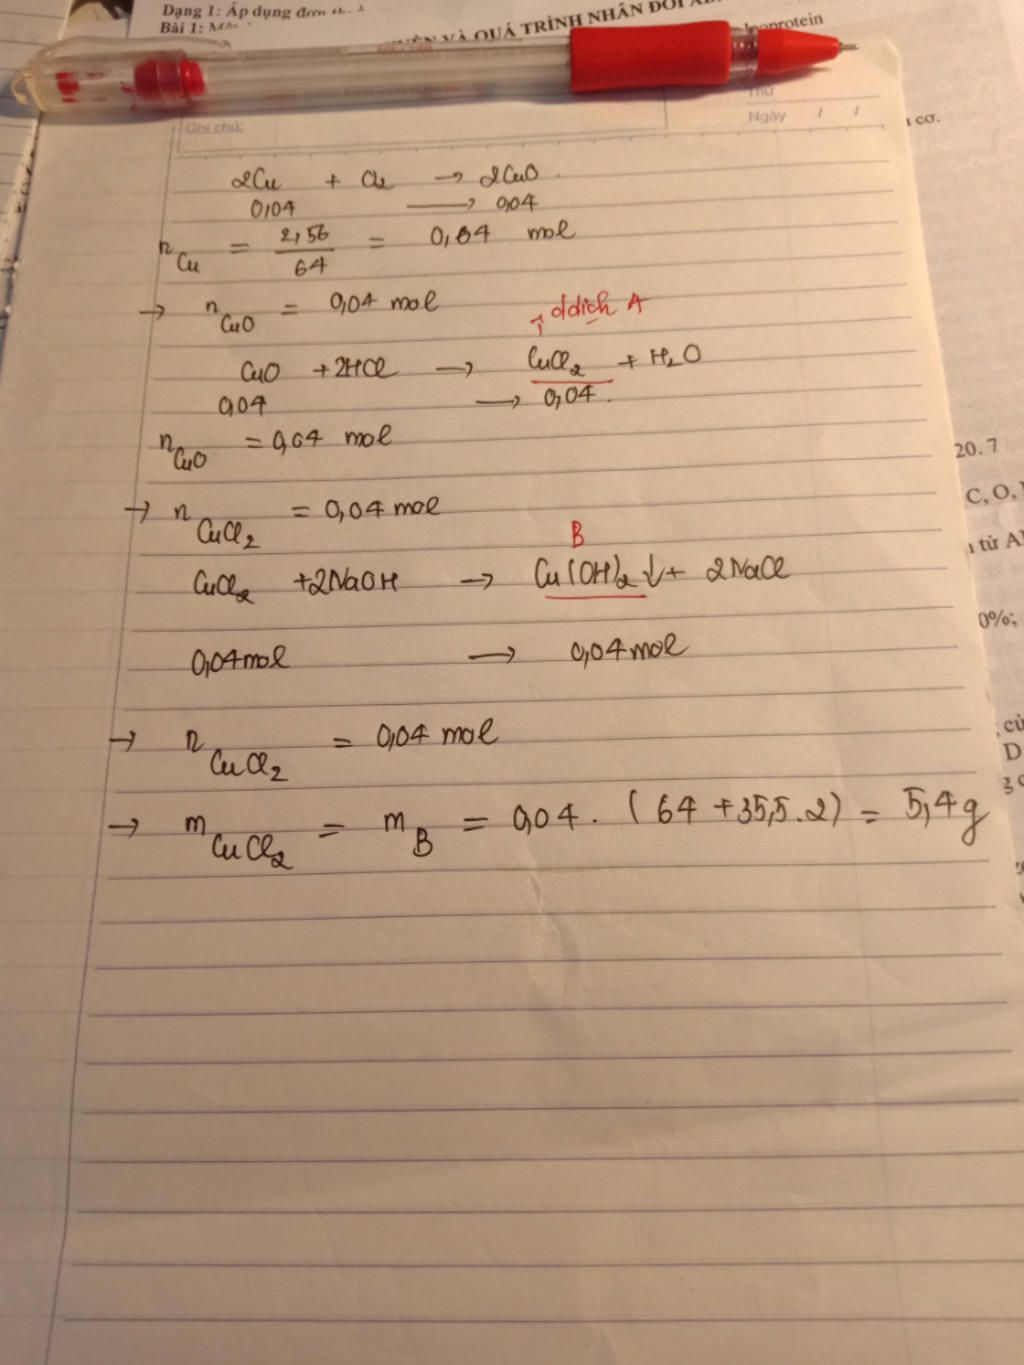 Dạng 1: Áp dụng đơn
Bài 1:
VÀ QUÁ TRÌNH NHÂN ĐÔI
Ghi chú:
Thứ
Ngày / /
cơ.
2Cu + O2 → 2CuO.
0,04 → 0,04
nCu = 2,56/64 = 0,04 mol
→ nCuO = 0,04 mol
ddịch A
CuO + 2HCl → CuCl2 + H2O
0,04 → 0,04.
nCuO = 0,04 mol
20. 7
C, O,
→ nCuCl2 = 0,04 mol
B
từ
CuCl2 + 2NaOH → Cu(OH)2 ↓ + 2NaCl
0%;
0,04 mol → 0,04 mol
→ nCuCl2 = 0,04 mol
D
→ mCuCl2 = mB = 0,04 . (64 + 35,5.2) = 5,4g